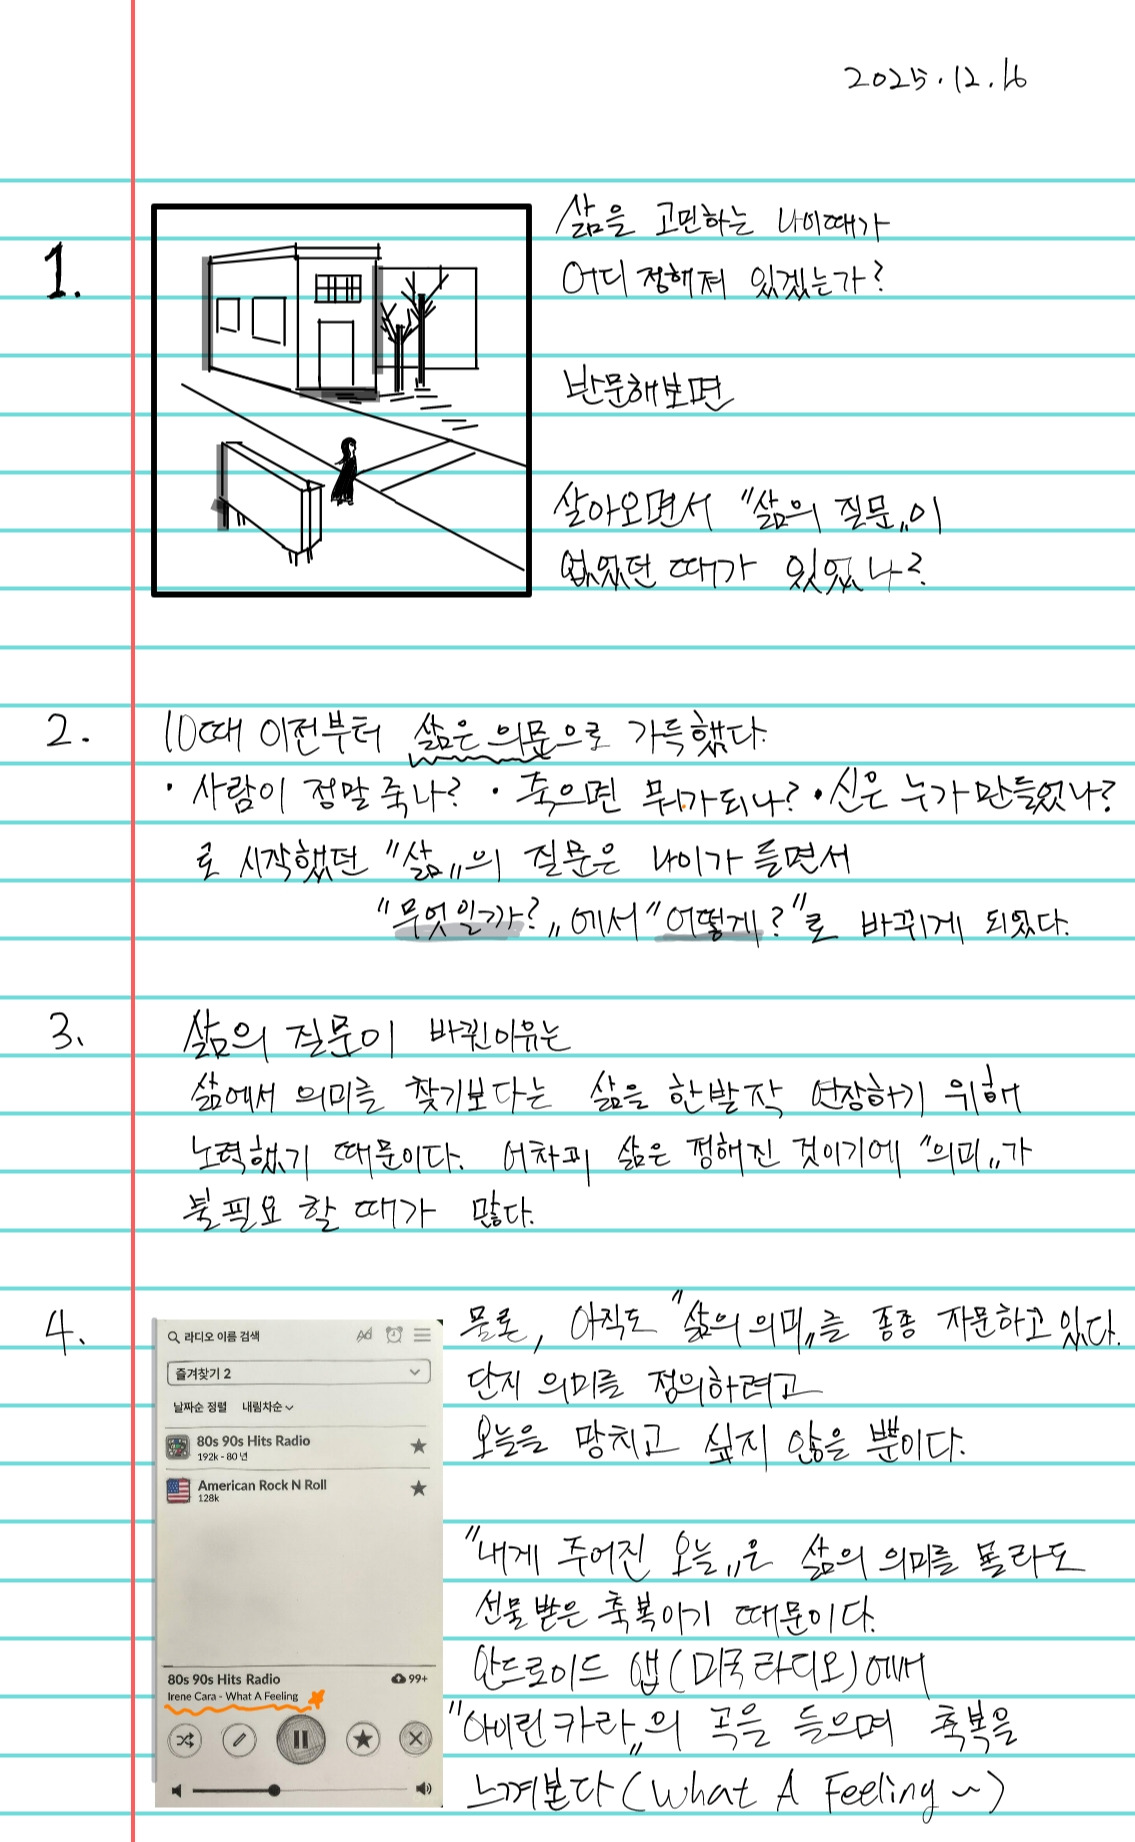 2025.12.16
1.
삶을 고민하는 나이때가
어디 정해져 있겠는가?
반문해보면
살아오면서 "삶의 질문"이
없었던 때가 있었나?
2. 10때 이전부터 삶은 의문으로 가득했다.
· 사람이 정말 죽나? · 죽으면 뭐가되나? · 신은 누가 만들었나?
로 시작했던 "삶"의 질문은 나이가 들면서
"무엇일까?"에서 "어떻게?"로 바뀌게 되었다.
3. 삶의 질문이 바뀐이유는
삶에서 의미를 찾기보다는 삶을 한발작 연장하기 위해
노력했기 때문이다. 어차피 삶은 정해진 것이기에 "의미"가
불필요 할 때가 많다.
4.
물론, 아직도 "삶의 의미"를 종종 자문하고 있다.
단지 의미를 정의하려고
오늘을 망치고 싶지 않을 뿐이다.
"내게 주어진 오늘"은 삶의 의미를 몰라도
선물받은 축복이기 때문이다.
안드로이드 앱(미국라디오)에서
"아이린카라"의 곡을 들으며 축복을
느껴본다 (What A Feeling ~)
라디오 이름 검색
Ad
즐겨찾기 2
날짜순 정렬 내림차순
80s 90s Hits Radio
192k - 80 년
American Rock N Roll
128k
80s 90s Hits Radio 99+
Irene Cara - What A Feeling